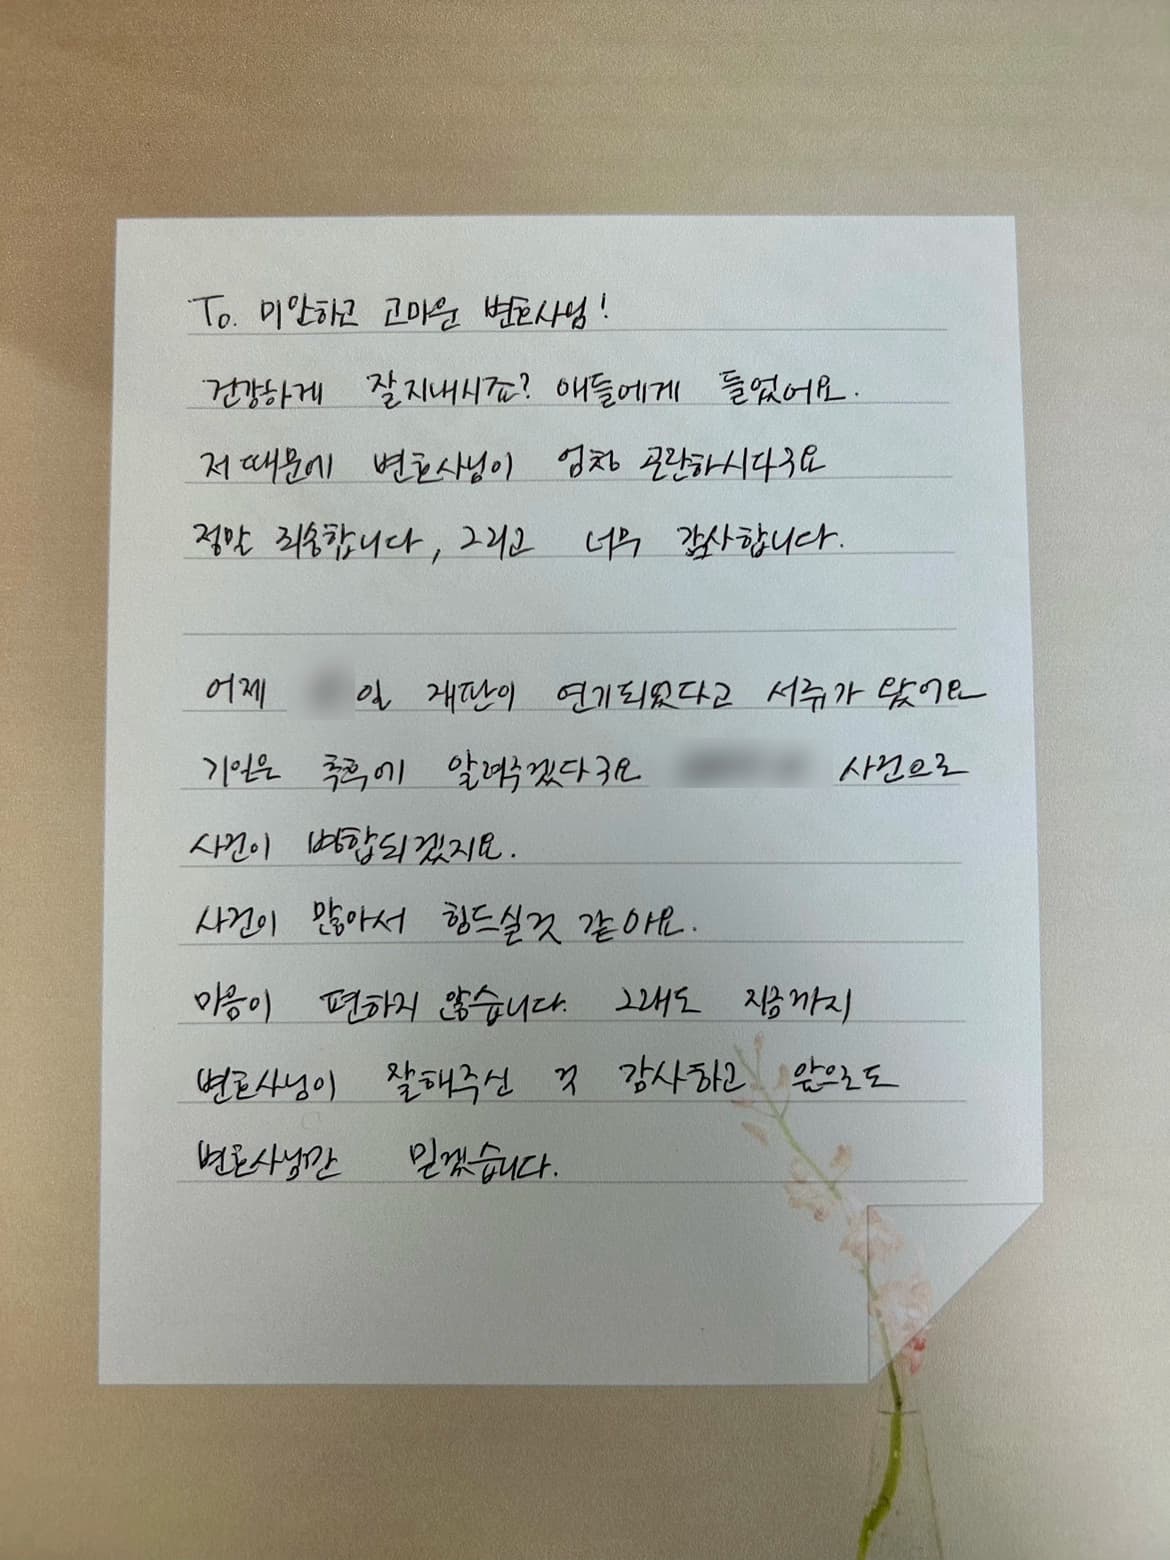 To. 미안하고 고마운 변호사님!
건강하게 잘지내시죠? 애들에게 들었어요.
저때문에 변호사님이 엄청 곤란하시다구요
정말 죄송합니다, 그리고 너무 감사합니다.
어제 일 재판이 연기되었다고 서류가 왔어요
기일은 추후에 알려주겠다구요 사건으로
사건이 병합되겠지요.
사건이 많아서 힘드실것 같아요.
마음이 편하지 않습니다. 그래도 지금까지
변호사님이 잘해주신 것 감사하고 앞으로도
변호사님만 믿겠습니다.